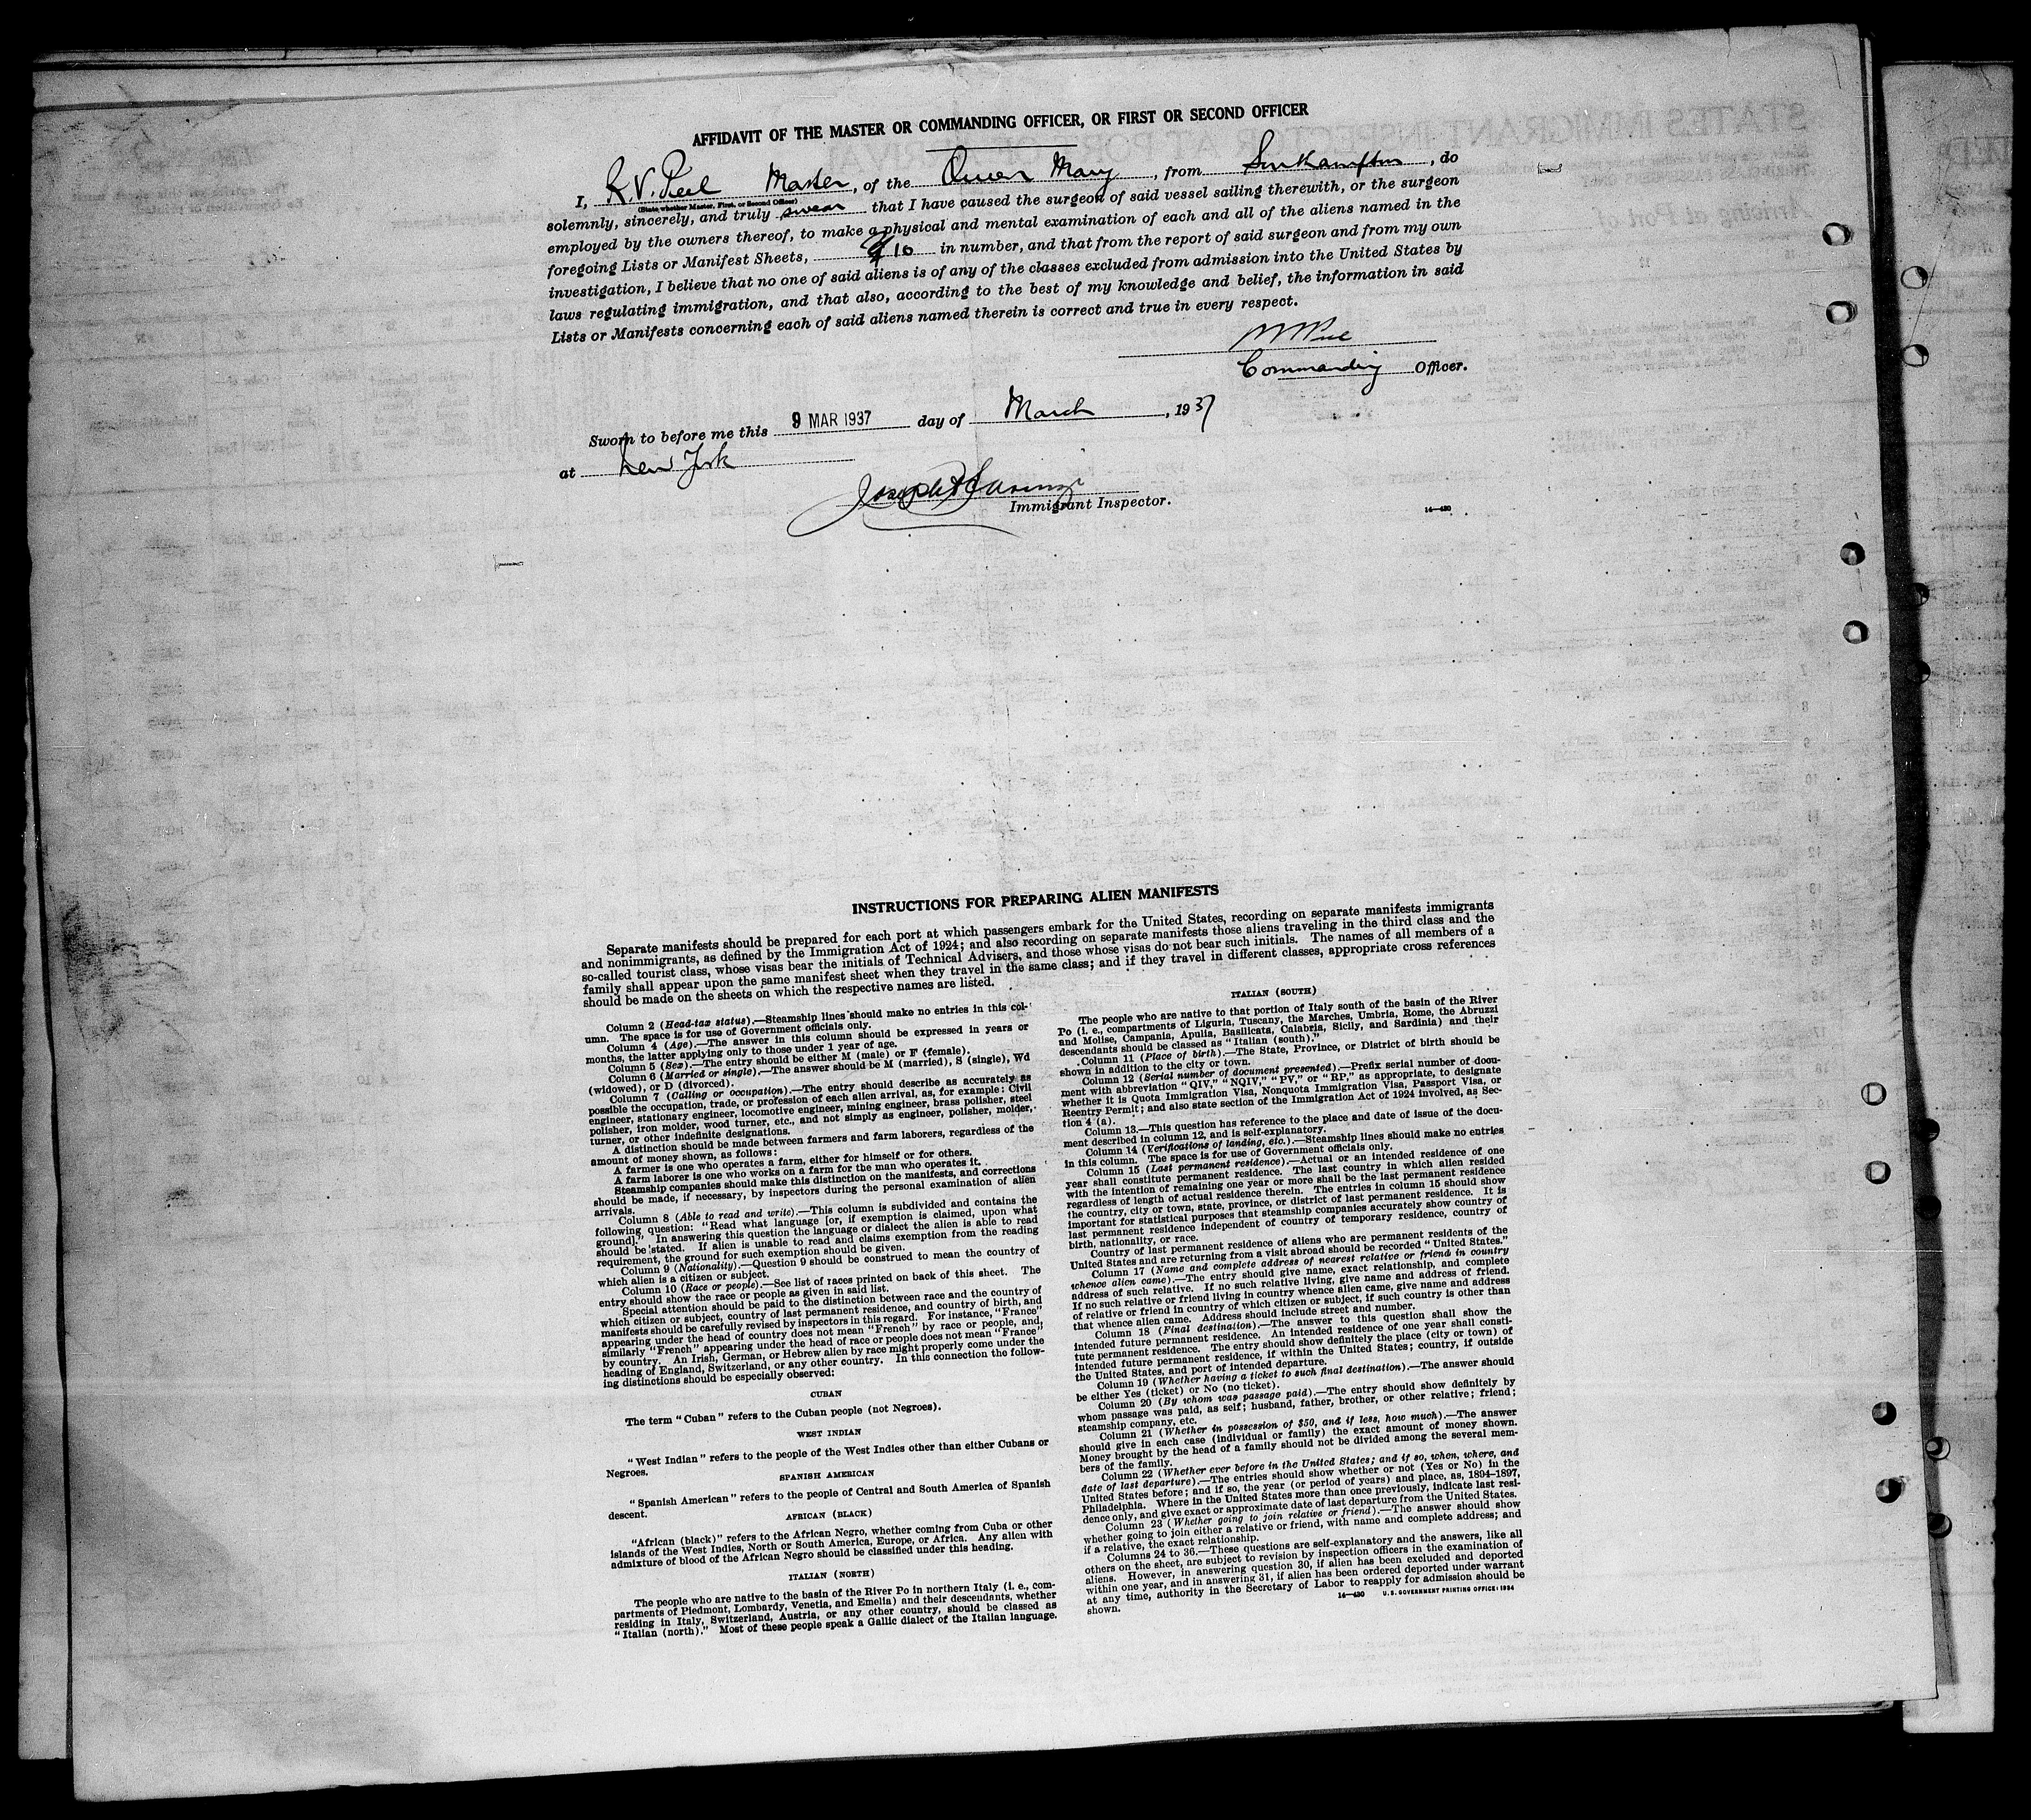 AFFIDAVIT OF THE MASTER OR COMMANDING OFFICER, OR FIRST OR SECOND OFFICER
I, R.V. Peel Master, of the Queen Mary, from Southampton, do
(State whether Master, First, or Second Officer)
solemnly, sincerely, and truly swear that I have caused the surgeon of said vessel sailing therewith, or the surgeon
employed by the owners thereof, to make a physical and mental examination of each and all of the aliens named in the
foregoing Lists or Manifest Sheets, 10 in number, and that from the report of said surgeon and from my own
investigation, I believe that no one of said aliens is of any of the classes excluded from admission into the United States by
laws regulating immigration, and that also, according to the best of my knowledge and belief, the information in said
Lists or Manifests concerning each of said aliens named therein is correct and true in every respect.
Commanding Officer.
Sworn to before me this 9 MAR 1937 day of March, 1937
at New York
Joseph
Immigrant Inspector.
14—430
INSTRUCTIONS FOR PREPARING ALIEN MANIFESTS
Separate manifests should be prepared for each port at which passengers embark for the United States, recording on separate manifests immigrants
and nonimmigrants, as defined by the Immigration Act of 1924; and also recording on separate manifests those aliens traveling in the third class and the
so-called tourist class, whose visas bear the initials of Technical Advisers, and those whose visas do not bear such initials. The names of all members of a
family shall appear upon the same manifest sheet when they travel in the same class; and if they travel in different classes, appropriate cross references
should be made on the sheets on which the respective names are listed.
Column 2 (Head-tax status).—Steamship lines should make no entries in this col-
umn. The space is for use of Government officials only.
Column 4 (Age).—The answer in this column should be expressed in years or
months, the latter applying only to those under 1 year of age.
Column 5 (Sex).—The entry should be either M (male) or F (female).
Column 6 (Married or single).—The answer should be M (married), S (single), Wd
(widowed), or D (divorced).
Column 7 (Calling or occupation).—The entry should describe as accurately as
possible the occupation, trade, or profession of each alien arrival, as, for example: Civil
engineer, stationary engineer, locomotive engineer, mining engineer, brass polisher, steel
polisher, iron molder, wood turner, etc., and not simply as engineer, polisher, molder,
turner, or other indefinite designations.
A distinction should be made between farmers and farm laborers, regardless of the
amount of money shown, as follows:
A farmer is one who operates a farm, either for himself or for others.
A farm laborer is one who works on a farm for the man who operates it.
Steamship companies should make this distinction on the manifests, and corrections
should be made, if necessary, by inspectors during the personal examination of alien
arrivals.
Column 8 (Able to read and write).—This column is subdivided and contains the
following question: "Read what language [or, if exemption is claimed, upon what
ground]." In answering this question the language or dialect the alien is able to read
should be stated. If alien is unable to read and claims exemption from the reading
requirement, the ground for such exemption should be given.
Column 9 (Nationality).—Question 9 should be construed to mean the country of
which alien is a citizen or subject.
Column 10 (Race or people).—See list of races printed on back of this sheet. The
entry should show the race or people as given in said list.
Special attention should be paid to the distinction between race and the country of
which citizen or subject, country of last permanent residence, and country of birth, and
manifests should be carefully revised by inspectors in this regard. For instance, "France"
appearing under the head of country does not mean "French" by race or people, and,
similarly "French" appearing under the head of race or people does not mean "France"
by country. An Irish, German, or Hebrew alien by race might properly come under the
heading of England, Switzerland, or any other country. In this connection the follow-
ing distinctions should be especially observed:
CUBAN
The term "Cuban" refers to the Cuban people (not Negroes).
WEST INDIAN
"West Indian" refers to the people of the West Indies other than either Cubans or
Negroes.
SPANISH AMERICAN
"Spanish American" refers to the people of Central and South America of Spanish
descent.
AFRICAN (BLACK)
"African (black)" refers to the African Negro, whether coming from Cuba or other
islands of the West Indies, North or South America, Europe, or Africa. Any alien with
admixture of blood of the African Negro should be classified under this heading.
ITALIAN (NORTH)
The people who are native to the basin of the River Po in northern Italy (i. e., com-
partments of Piedmont, Lombardy, Venetia, and Emelia) and their descendants, whether
residing in Italy, Switzerland, Austria, or any other country, should be classed as
"Italian (north)." Most of these people speak a Gallic dialect of the Italian language.
ITALIAN (SOUTH)
The people who are native to that portion of Italy south of the basin of the River
Po (i. e., compartments of Liguria, Tuscany, the Marches, Umbria, Rome, the Abruzzi
and Molise, Campania, Apulia, Basilicata, Calabria, Sicily, and Sardinia) and their
descendants should be classed as "Italian (south)."
Column 11 (Place of birth).—The State, Province, or District of birth should be
shown in addition to the city or town.
Column 12 (Serial number of document presented).—Prefix serial number of docu-
ment with abbreviation "QIV," "NQIV," "PV," or "RP," as appropriate, to designate
whether it is Quota Immigration Visa, Nonquota Immigration Visa, Passport Visa, or
Reentry Permit; and also state section of the Immigration Act of 1924 involved, as Sec-
tion 4 (a).
Column 13.—This question has reference to the place and date of issue of the docu-
ment described in column 12, and is self-explanatory.
Column 14 (Verifications of landing, etc.).—Steamship lines should make no entries
in this column. The space is for use of Government officials only.
Column 15 (Last permanent residence).—Actual or an intended residence of one
year shall constitute permanent residence. The last country in which alien resided
with the intention of remaining one year or more shall be the last permanent residence
regardless of length of actual residence therein. The entries in column 15 should show
the country, city or town, state, province, or district of last permanent residence. It is
important for statistical purposes that steamship companies accurately show country of
last permanent residence independent of country of temporary residence, country of
birth, nationality, or race.
Country of last permanent residence of aliens who are permanent residents of the
United States and are returning from a visit abroad should be recorded "United States."
Column 17 (Name and complete address of nearest relative or friend in country
whence alien came).—The entry should give name, exact relationship, and complete
address of such relative. If no such relative living, give name and address of friend.
If no such relative or friend living in country whence alien came, give name and address
of relative or friend in country of which citizen or subject, if such country is other than
that whence alien came. Address should include street and number.
Column 18 (Final destination).—The answer to this question shall show the
intended future permanent residence. An intended residence of one year shall consti-
tute permanent residence. The entry should show definitely the place (city or town) of
intended future permanent residence, if within the United States; country, if outside
the United States, and port of intended departure.
Column 19 (Whether having a ticket to such final destination).—The answer should
be either Yes (ticket) or No (no ticket).
Column 20 (By whom was passage paid).—The entry should show definitely by
whom passage was paid, as self; husband, father, brother, or other relative; friend;
steamship company, etc.
Column 21 (Whether in possession of $50, and if less, how much).—The answer
should give in each case (individual or family) the exact amount of money shown.
Money brought by the head of a family should not be divided among the several mem-
bers of the family.
Column 22 (Whether ever before in the United States; and if so, when, where, and
date of last departure).—The entries should show whether or not (Yes or No) in the
United States before; and if so, the year (or period of years) and place, as, 1894–1897,
Philadelphia. Where in the United States more than once previously, indicate last resi-
dence only, and give exact or approximate date of last departure from the United States.
Column 23 (Whether going to join relative or friend).—The answer should show
whether going to join either a relative or friend, with name and complete address; and
if a relative, the exact relationship.
Columns 24 to 36.—These questions are self-explanatory and the answers, like all
others on the sheet, are subject to revision by inspection officers in the examination of
aliens. However, in answering question 30, if alien has been excluded and deported
within one year, and in answering 31, if alien has been ordered deported under warrant
at any time, authority in the Secretary of Labor to reapply for admission should be
shown.
14—430 U. S. GOVERNMENT PRINTING OFFICE: 1934